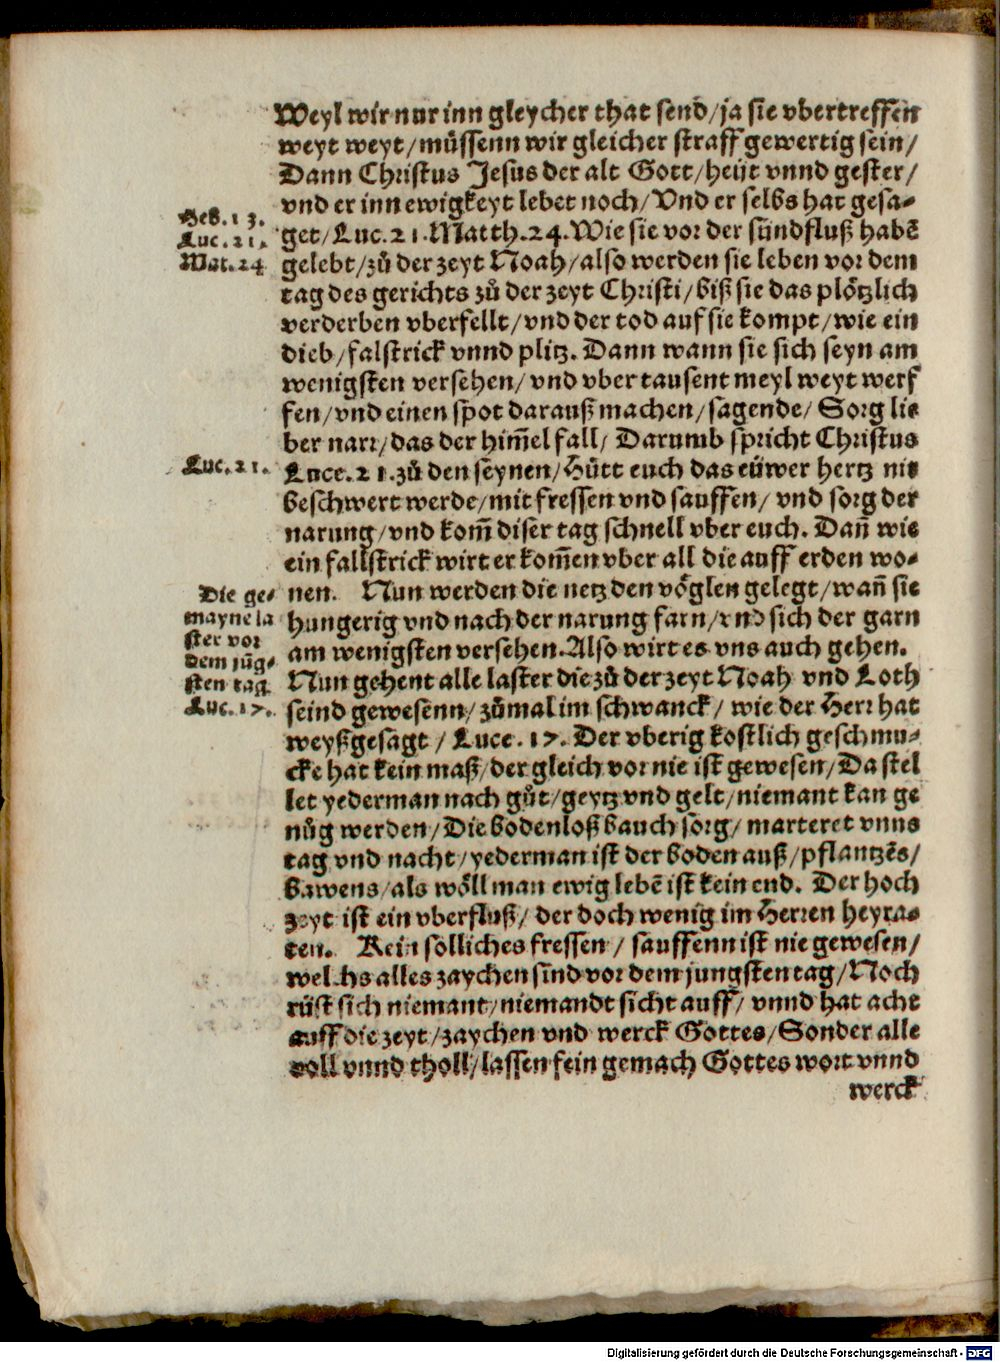 Weyl wir nur inn gleycher that send/ja sie vbertreffen
weyt weyt/müssenn wir gleicher straff gewertig sein/
Dann Christus Jesus der alt Gott/heüt vnnd gester/
vnd er inn ewigkeyt lebet noch/Vnd er selbs hat gesa-
Heb. 13.
get/Luc.21.Matth.24.Wie sie vor der sündfluß habē
Luc. 21.
gelebt/zů der zeyt Noah/also werden sie leben vor dem
Mat. 24
tag des gerichts zů der zeyt Christi/biß sie das plötzlich
verderben vberfellt/vnd der tod auf sie kompt/wie ein
dieb/falstrick vnnd plitz. Dann wann sie sich seyn am
wenigsten versehen/vnd vber tausent meyl weyt werf
fen/vnd einen spot darauß machen/sagende/Sorg lie
ber narr/das der him̄el fall/ Darumb spricht Christus
Luc. 21.
Luce. 21.zů den seynen/Hütt euch das eüwer hertz nit
beschwert werde/mit fressen vnd sauffen/ vnd sorg der
narung/vnd kom̄ diser tag schnell vber euch. Dañ wie
ein fallstrick wirt er kom̄en vber all die auff erden wo-
nen. Nun werden die netz den vöglen gelegt/wañ sie
Die ge-
mayne la
ster vor
dem jüg-
sten tag
Luc. 17.
hungerig vnd nach der narung farn/vnd sich der garn
am wenigsten versehen.Also wirt es vns auch gehen.
Nun gehent alle laster die zů der zeyt Noah vnd Loth
seind gewesenn/zůmal im schwanck/ wie der Herr hat
weyßgesagt / Luce. 17. Der vberig kostlich geschmu-
cke hat kein maß/der gleich vor nie ist gewesen/Da stel
let yederman nach gůt/geytz vnd gelt/niemant kan ge
nůg werden/Die bodenloß bauch sorg/ marteret vnns
tag vnd nacht/yederman ist der boden auß/pflantzēs/
bawens/als wöll man ewig lebē ist kein end. Der hoch
zeyt ist ein vberfluß/ der doch wenig im Herren heyra-
ten. Kein solliches fressen / sauffenn ist nie gewesen/
welchs alles zaychen sind vor dem jungsten tag/Noch
rüst sich niemant/niemandt sicht auff/ vnnd hat acht
auff die zeyt/zaychen vnd werck Gottes/Sonder alle
voll vnnd tholl/lassen fein gemach Gottes wort vnnd
werck
Digitalisierung gefördert durch die Deutsche Forschungsgemeinschaft - DFG